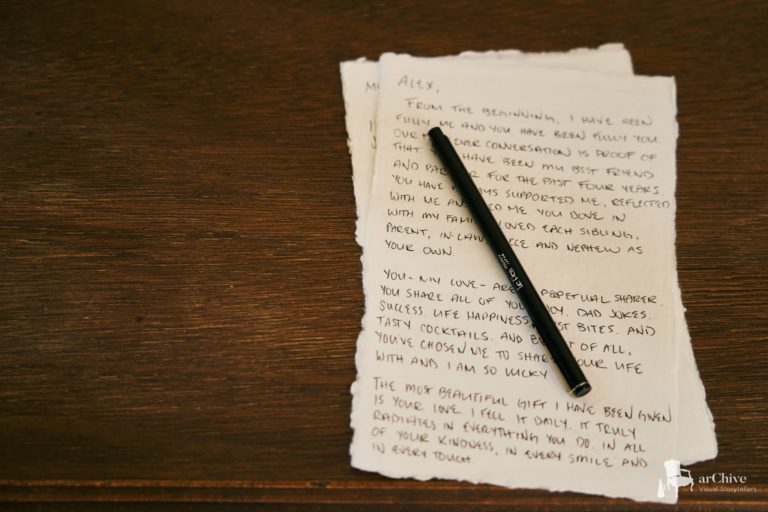 ALEX,
FROM THE BEGINNING, I HAVE BEEN
FULLY ME AND YOU HAVE BEEN FULLY YOU
OUR EVER CONVERSATION IS PROOF OF
THAT HAVE BEEN MY BEST FRIEND
AND FOR THE PAST FOUR YEARS.
YOU HAVE SUPPORTED ME, REFLECTED
WITH ME AND ME. YOU DOVE IN
WITH MY LOVED EACH SIBLING,
PARENT, AND NEPHEW AS
YOUR OWN.
YOU - MY LOVE - ARE PERPETUAL SHARER.
YOU SHARE ALL OF DAD JOKES.
SUCCESS. LIFE HAPPINESS. BITES. AND
TASTY COCKTAILS. AND OF ALL,
YOU'VE CHOSEN ME TO SHARE YOUR LIFE
WITH AND I AM SO LUCKY.
THE MOST BEAUTIFUL GIFT I HAVE BEEN GIVEN
IS YOUR LOVE. I FEEL IT DAILY. IT TRULY
RADIATES IN EVERYTHING YOU DO. IN ALL
OF YOUR KINDNESS, IN EVERY SMILE AND
IN EVERY TOUCH.
arChive
Visual Storytellers